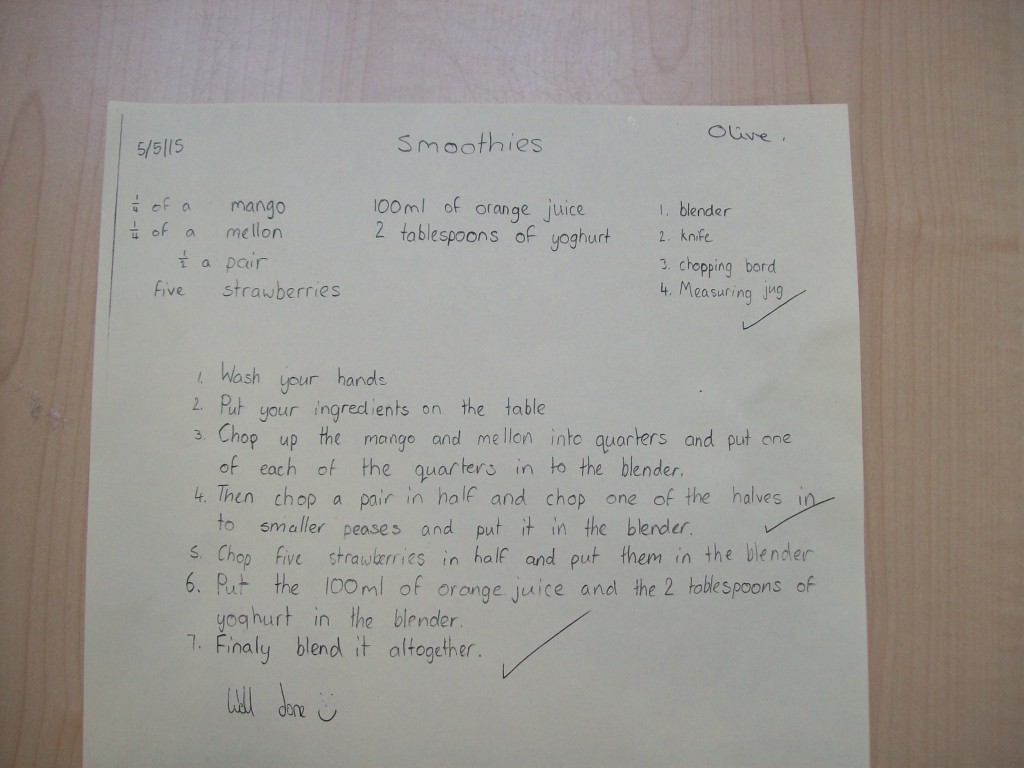 5/5/15 Smoothies Olive.
1/4 of a mango 100ml of orange juice 1. blender
1/4 of a mellon 2 tablespoons of yoghurt 2. knife
1/2 a pair 3. chopping bord
five strawberries 4. Measuring jug
1. Wash your hands
2. Put your ingredients on the table
3. Chop up the mango and mellon into quarters and put one
of each of the quarters in to the blender.
4. Then chop a pair in half and chop one of the halves in
to smaller peases and put it in the blender.
5. Chop five strawberries in half and put them in the blender
6. Put the 100ml of orange juice and the 2 tablespoons of
yoghurt in the blender.
7. Finaly blend it altogether.
Well done